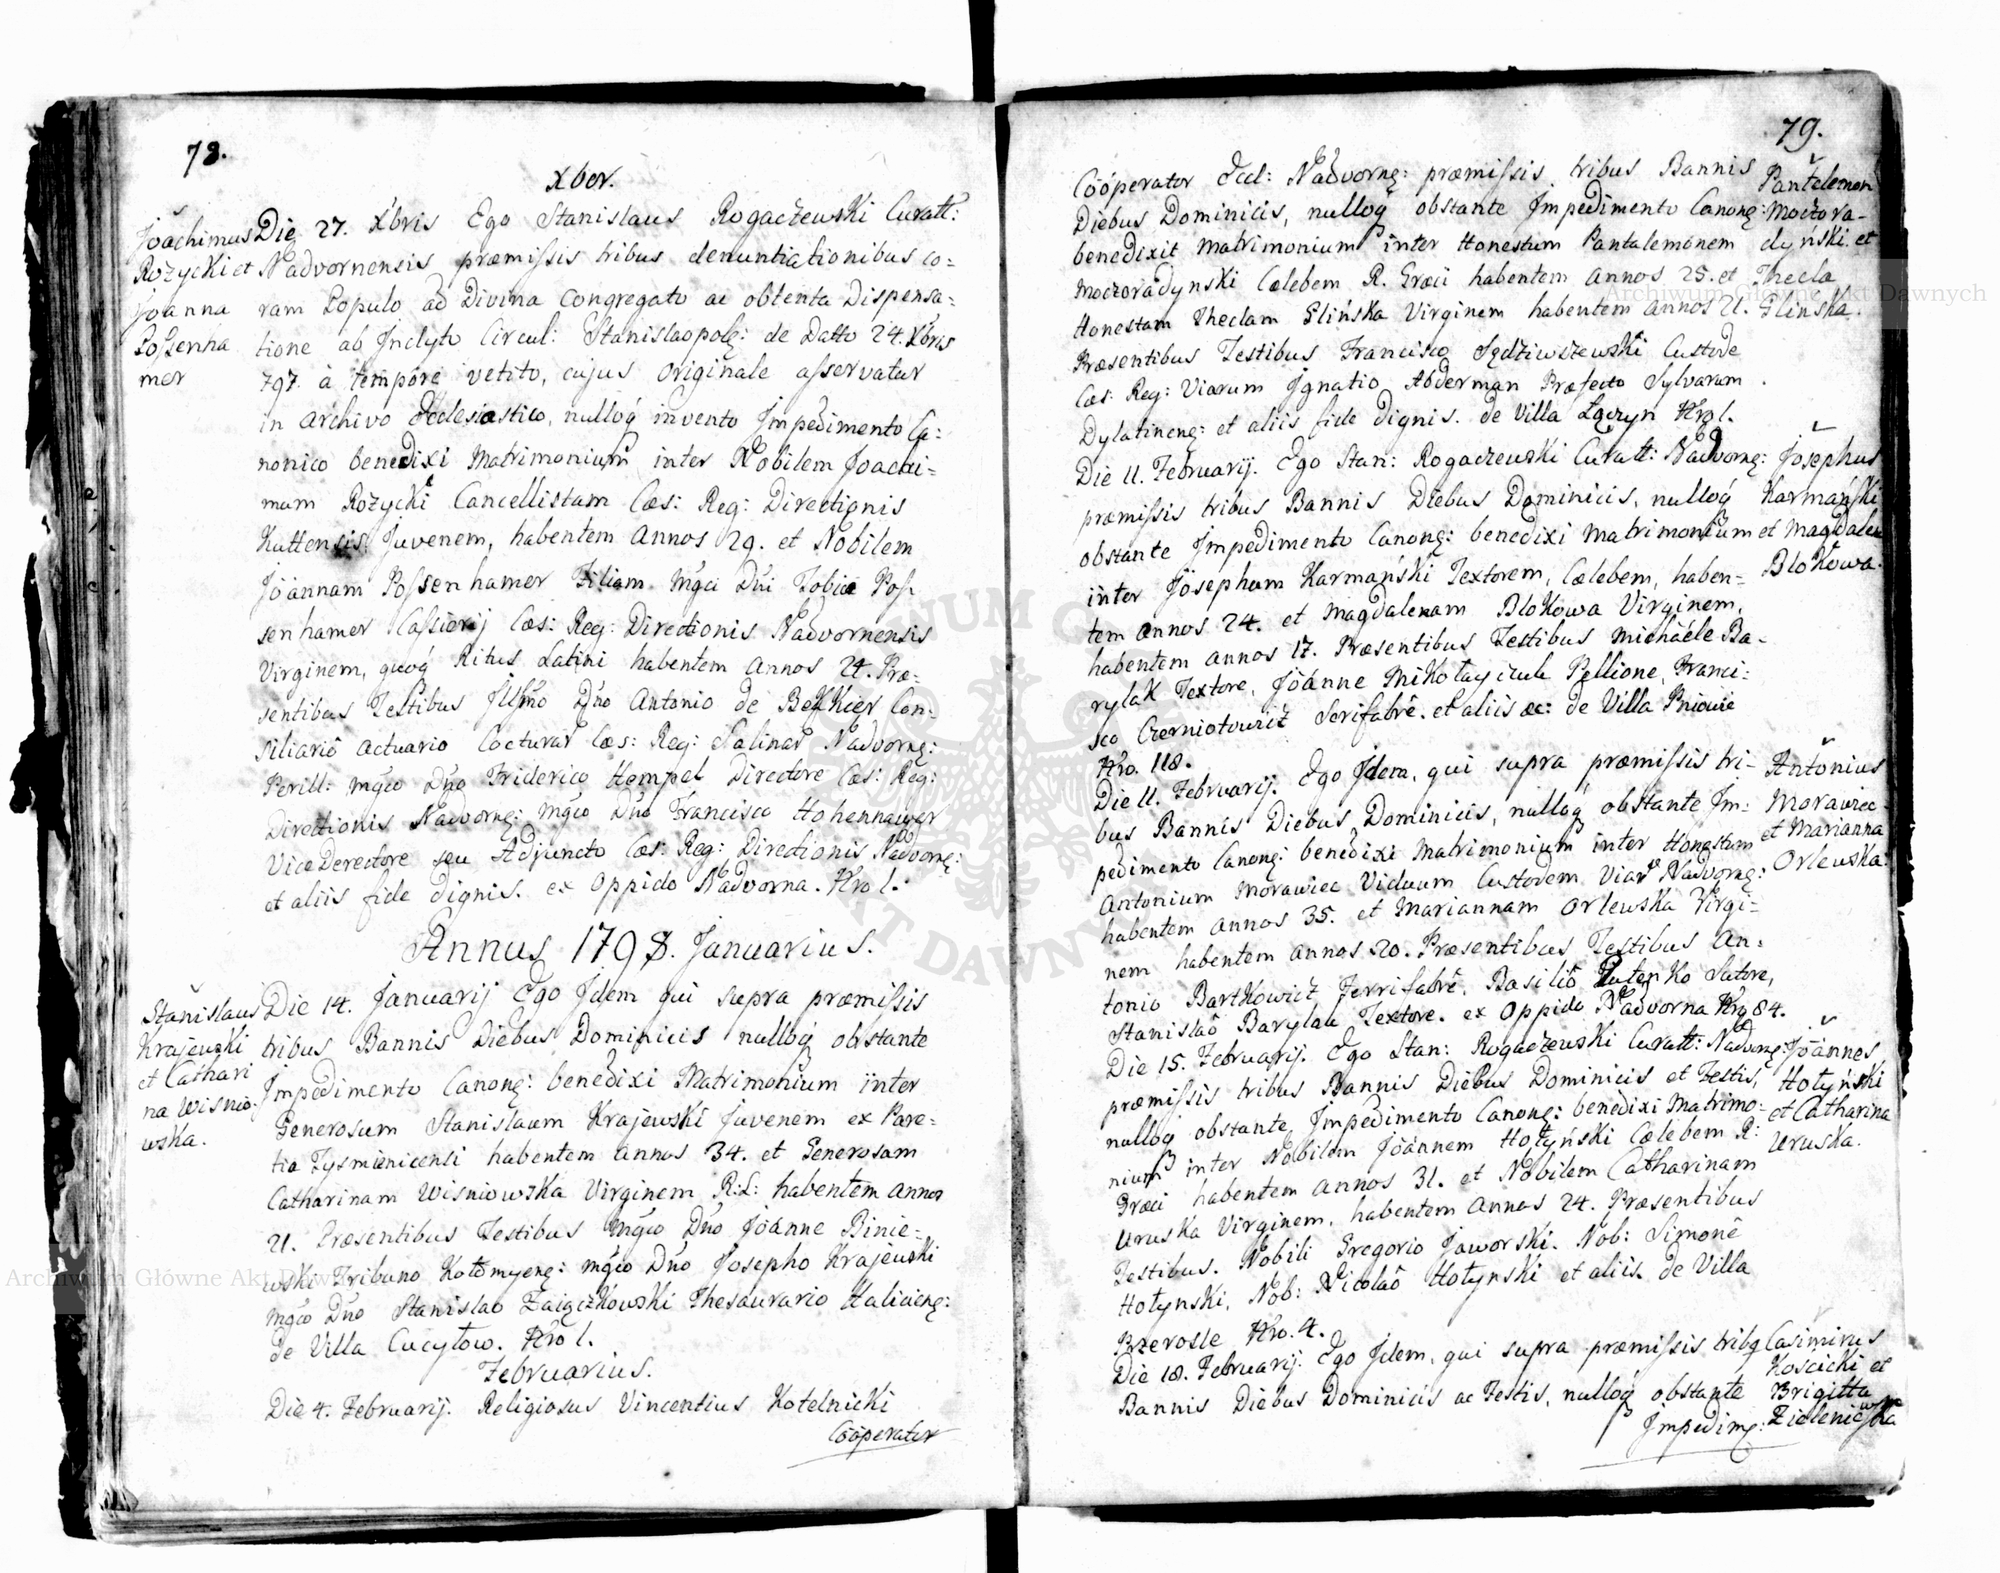 78.
Xber.
Joachimus
Rożycki et
Joanna
Possenha
mer
Die 27. Xbris Ego Stanislaus Rogaczewski Curatt:
Nadvornensis præmissis tribus denuntiationibus co=
ram Populo ad Divina Congregato ac obtenta Dispensa=
tione ab Inclyto Circul: Stanislaopolę: de Datto 24. Xbris
797. à tempore vetito, cujus originale asservatur
in Archivo Ecclesiastico, nulloq́ invento Impedimento Ca=
nonico benedixi Matrimonium inter Nobilem Joachi=
mum Rożycki Cancellistam Cæs: Reg: Directionis
Kuttensis Juvenem, habentem Annos 29. et Nobilem
Jóannam Possenhamer Filiam Mgci Dni Tobiæ Poss
senhamer Cassiorij Cæs: Reg: Directionis Nadvornensis
Virginem, quoq́ Ritus Latini habentem Annos 24. Præ=
sentibus Testibus Illmo Dno Antonio de Con=
siliario Actuario Cocturar Cæs: Reg: Salinar Nadvornę:
Perill: Mgco Dno Friderico Hempel Directore Cæs: Reg:
Directionis Nadvornę: Mgco Dno Francisco Hohennauer
Vice Derectore seu Adjuncto Cæs: Reg: Directionis Nadvornę:
et aliis fide dignis. ex Oppido Nadvorna. Nro 1.
Annus 1798. Januarius.
Stanislaus
Krajewski
et Cathari
na Wisnio
wska.
Die 14. Januarij Ego Idem qui supra præmissis
tribus Bannis Diebus Dominicis nulloq́ obstante
Impedimento Canonę: benedixi Matrimonium inter
Generosum Stanislaum Krajewski Juvenem ex Pare=
tia Tysmienicensi habentem Annos 34. et Generosam
Catharinam Wisniowska Virginem R:L: habentem Annos
21. Præsentibus Testibus Mgco Dno Jóanne Binie=
wski Tribuno Kołomyenę: Mgco Dno Josepho Krajewski
Mgco Dno Stanislao Zaiączkowski Thesaurario Halicienę:
de Villa Cucyłow. Nro 1.
Februarius.
Die 4. Februarij. Religiosus Vincentius Kotelnicki
Cooperator
79.
Cooperator Eccl: Nadvornę: præmissis tribus Bannis
Diebus Dominicis, nulloq́ obstante Impedimento Canonę:
benedixit Matrimonium inter Honestum Pantalemonem
Moczoradynski Cælebem R. Græci habentem Annos 25. et
Honestam Theclam Glińska Virginem habentem Annos 21.
Præsentibus Testibus Francisco Sędziwszewski Custode
Cæs: Reg: Viarum Ignatio Abderman Præfecto Sylvarum
Dylatinenę: et aliis fide dignis. de Villa Łączyn Nro 1.
Pantalemon
Moczora-
dyński et
Thecla
Glinska.
Die 11. Februarij. Ego Stan: Rogaczewski Curatt: Nadvornę:
præmissis tribus Bannis Diebus Dominicis, nulloq́
obstante Impedimento Canonę: benedixi Matrimonium
inter Jósephum Karmański Textorem, Cælebem, haben=
tem Annos 24. et Magdalenam Blokowa Virginem,
habentem Annos 17. Præsentibus Testibus Michaële Ba-
rylak Textore, Jóanne Mikołayczuk Pellione, Franci=
sco Czerniotowicz Serifabrê. et aliis &c: de Villa Pniowie
Nro. 118.
Jósephus
Karmański
et Magdalen
Blokowa.
Die 11. Februarij. Ego Idem, qui supra præmissis tri-
bus Bannis Diebus Dominicis, nulloq́ obstante Im:
pedimento Canonę: benedixi Matrimonium inter Honestum
Antonium Morawiec Viduum Custodem Viar Nadvornę:
habentem Annos 35. et Mariannam Orlewska Virgi=
nem habentem Annos 20. Præsentibus Testibus An=
tonio Bartkowicz Ferrifabrê, Basiliô Sutore,
Stanislaô Barylak Textore. ex Oppido Nadvorna Nro 84.
Antonius
Morawiec
et Marianna
Orlewska.
Die 15. Februarij. Ego Stan: Rogaczewski Curatt: Nadvornę:
præmissis tribus Bannis Diebus Dominicis et Festis,
nulloq́ obstante, Impedimento Canonę: benedixi Matrimo=
nium inter Nobilem Jóannem Hołyński Cælebem R:
Græci habentem Annos 31. et Nobilem Catharinam
Uruska Virginem, habentem Annos 24. Præsentibus
Testibus. Nobili Gregorio Jaworski. Nob: Simonê
Hołynski, Nob: Nicolaô Hołynski et aliis. de Villa
Przerosle Nro. 4.
Jóannes
Hołyński
et Catharina
Uruska.
Die 18. Februarij. Ego Idem, qui supra præmissis tribą
Bannis Diebus Dominicis ac Festis, nulloq́ obstante
Impedimę:
Casimirus
Kościcki et
Brigitta
Zieleniewska
Archiwum Główne Akt Dawnych
Archiwum Główne Akt Dawnych